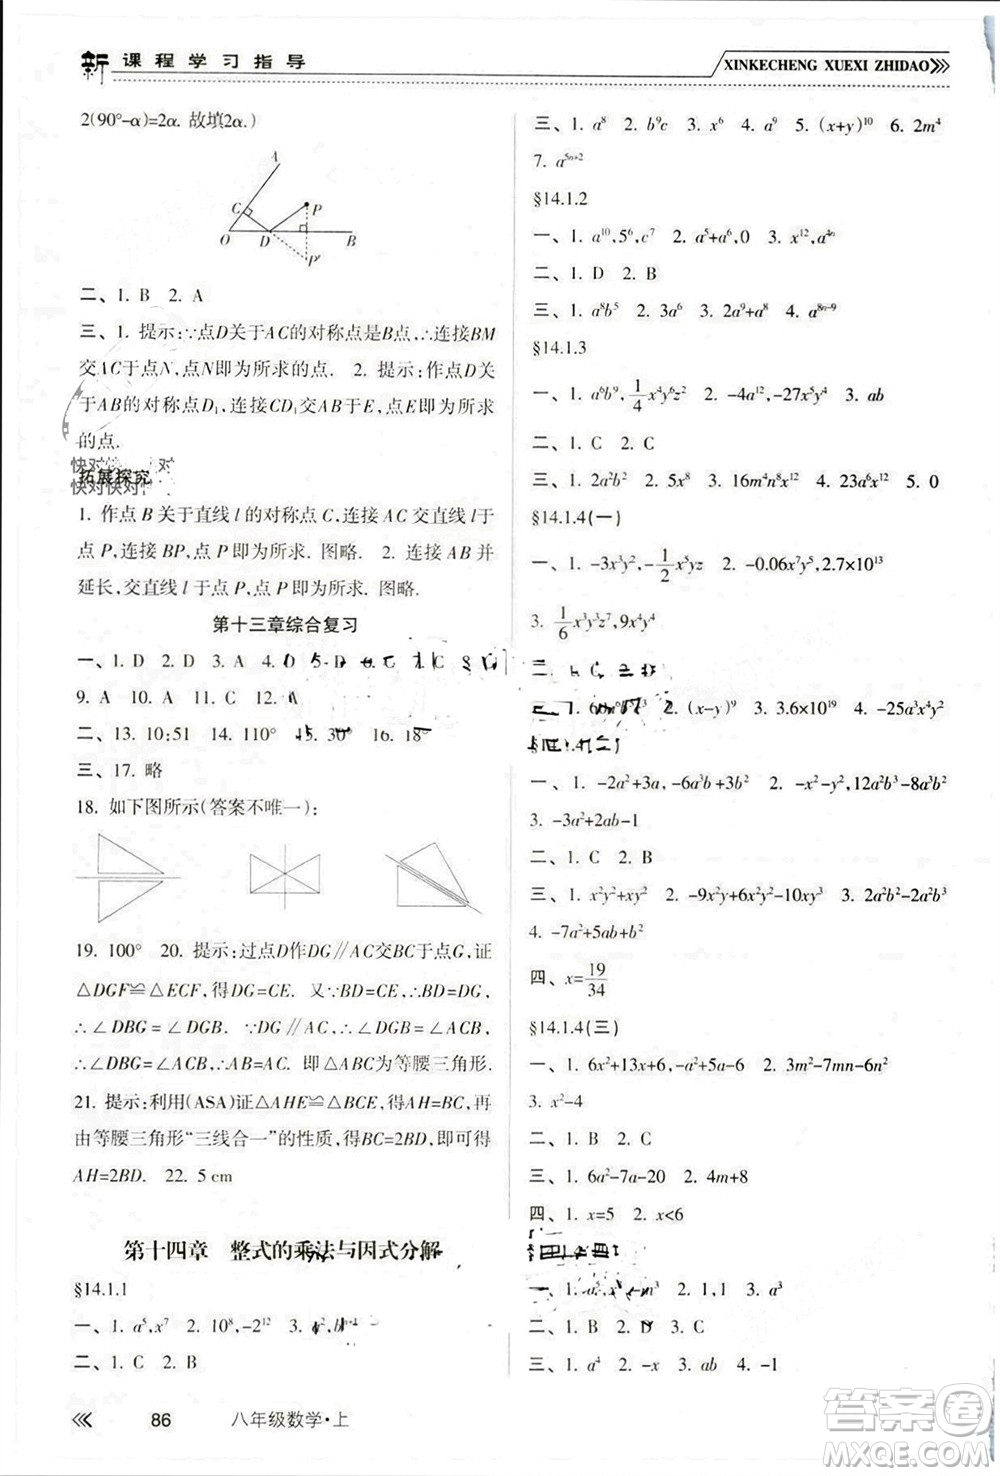 新课程学习指导
XINKECHENG XUEXI ZHIDAO
2(90°-α)=2α. 故填2α.)
A
C
P
O
D
B
P'
二、1. B 2. A
三、1. 提示:∵点D关于AC的对称点是B点,∴连接BM
交AC于点N,点N即为所求的点. 2. 提示:作点D关
于AB的对称点D₁,连接CD₁交AB于E,点E即为所求
的点.
快对快对
拓展探究
快对快对
1. 作点 B 关于直线 l 的对称点 C,连接 AC 交直线 l于
点 P,连接 BP,点 P 即为所求. 图略. 2. 连接 AB 并
延长,交直线 l 于点 P,点 P 即为所求. 图略.
第十三章综合复习
一、1. D 2. D 3. A
9. A 10. A 11. C 12.
二、13. 10:51 14. 110° 15. 30° 16. 18
三、17. 略
18. 如下图所示(答案不唯一):
19. 100° 20. 提示:过点D作DG∥AC交BC于点G,证
△DGF≌△ECF,得DG=CE. 又∵BD=CE,∴BD=DG.
∴∠DBG=∠DGB. ∵DG∥AC,∴∠DGB=∠ACB.
∴∠DBG=∠ACB. ∴AB=AC. 即△ABC为等腰三角形.
21. 提示:利用(ASA)证△AHE≌△BCE,得AH=BC,再
由等腰三角形“三线合一”的性质,得BC=2BD,即可得
AH=2BD. 22. 5 cm
第十四章 整式的乘法与因式分解
§14.1.1
一、1. a⁵,x⁷ 2. 10⁸,-2¹² 3.
二、1. C 2. B
三、1. a⁸ 2. b⁹c 3. x⁶ 4. a⁹ 5. (x+y)¹⁰ 6. 2m⁴
7. a⁵ⁿ⁺²
§14.1.2
一、1. a¹⁰,5⁶,c⁷ 2. a⁵+a⁶,0 3. x¹²,a⁴ⁿ
二、1. D 2. B
三、1. a⁸b⁵ 2. 2a⁹+a⁸ 3. a⁸ⁿ⁻⁸
§14.1.3
一、1. a⁶b⁹,1/4x⁴y⁶z² 2. -4a¹²,-27x³y⁵ 3. ab
二、1. C 2. C
三、1. 2a²b² 2. 5x⁸ 3. 16m⁴n⁸x¹² 4. 23a⁶x¹² 5. 0
§14.1.4(一)
一、1. -3x³y²,-1/2x⁵yz 2. -0.06x⁷y⁵,2.7×10¹³
3. 1/6x³y³z⁷,9x⁴y⁴
2. (x-y)⁹ 3. 3.6×10¹⁹ 4. -25a³x⁴y²
一、1. -2a²+3a,-6a³b+4ab² 2. -x²-y²,12a²b²-8a²b
3. -3a²+2ab-1
二、1. C 2. B
三、1. x²y²+xy³ 2. -9x²y+6x²y²-10xy³ 3. 2a²b²+b²
4. -7a²+5ab+b²
四、x=19/34
§14.1.4(三)
一、1. 6x²+13x+6,-a²-a+2 2. 2mn,8m-2n
3. x²-4
二、1. B 2. C
三、1. 6a²-7a-20 2. 4m+8
四、1. x=5 2. x<6
2. 1,1 3. a³
二、1. B 2. D
三、1. a⁴ 2. -x 3. ab 4. -1
86
八年级数学·上
答案圈
MXQE.COM